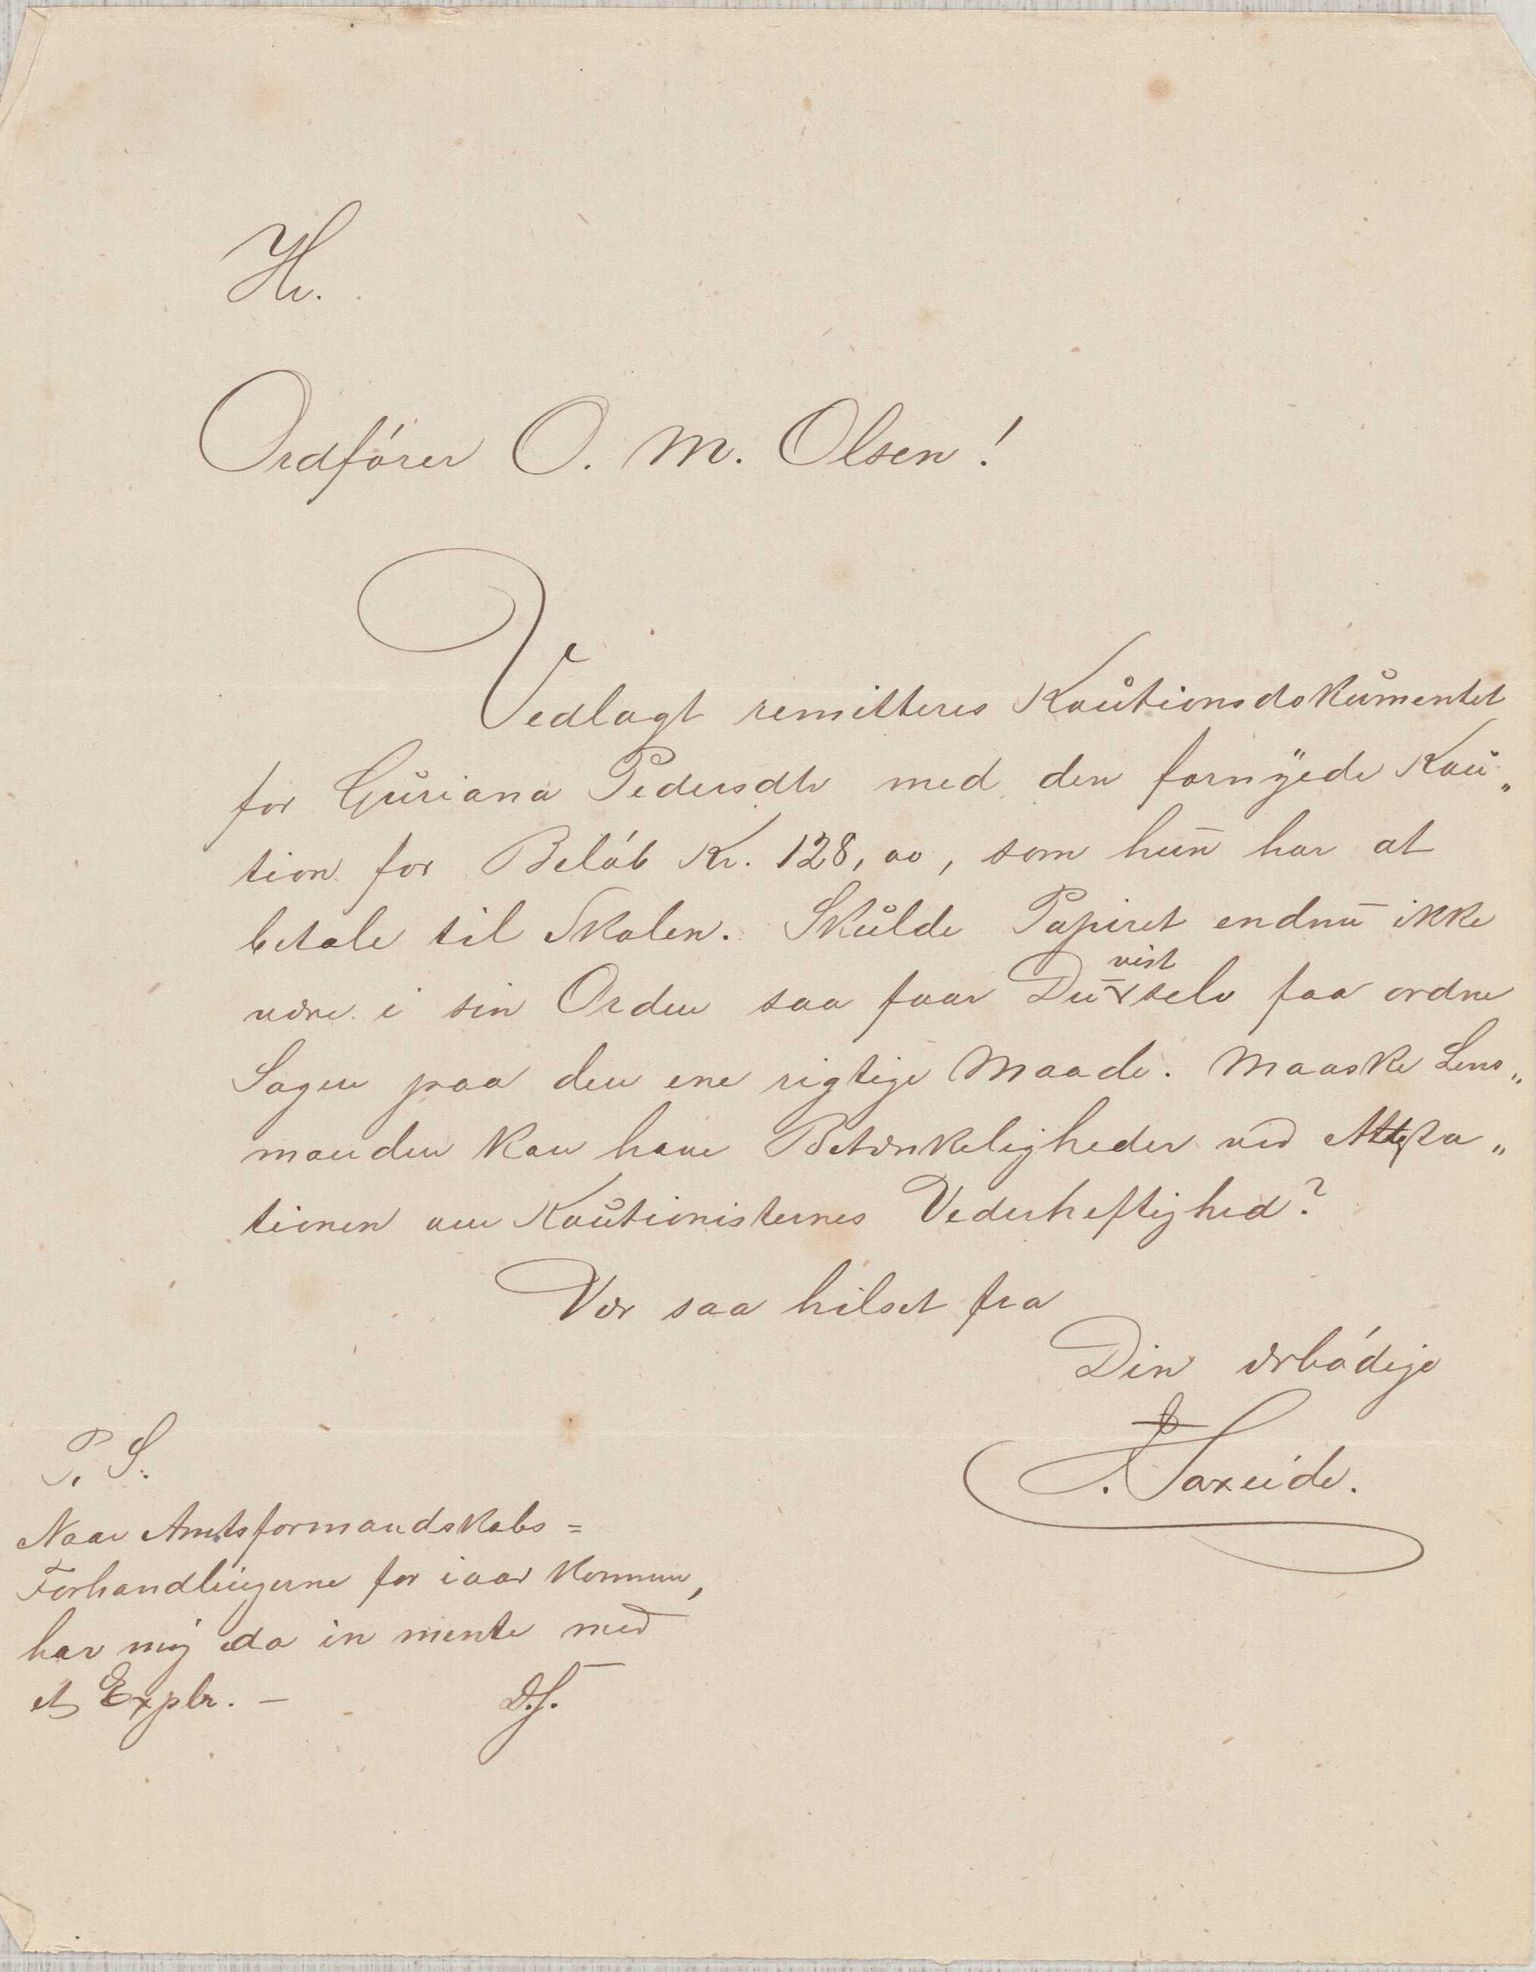 Hr.
Ordfører O. M. Olsen!
Vedlagt remitteres Kautionsdokumentet
for Guriana Pedersdtr med den fornyede Kau„
tion for Beløb Kr. 128,00, som hun har at
betale til Skolen. Skulde Papiret endnu ikke
være i sin Orden saa faar Du vist selv faa ordne
Sagen paa den ene rigtige Maade. Maaske Lens„
manden kan have Betænkeligheder ved Attesta„
tionen om Kautionisternes Vederheftighed?
Vær saa hilset fra
Din ærbødige
Saxeide.
P. S.
Naar Amtsformandskabs=
Forhandlingerne for iaar kommer,
har mig da in mente med
et Explr. —
D.S.